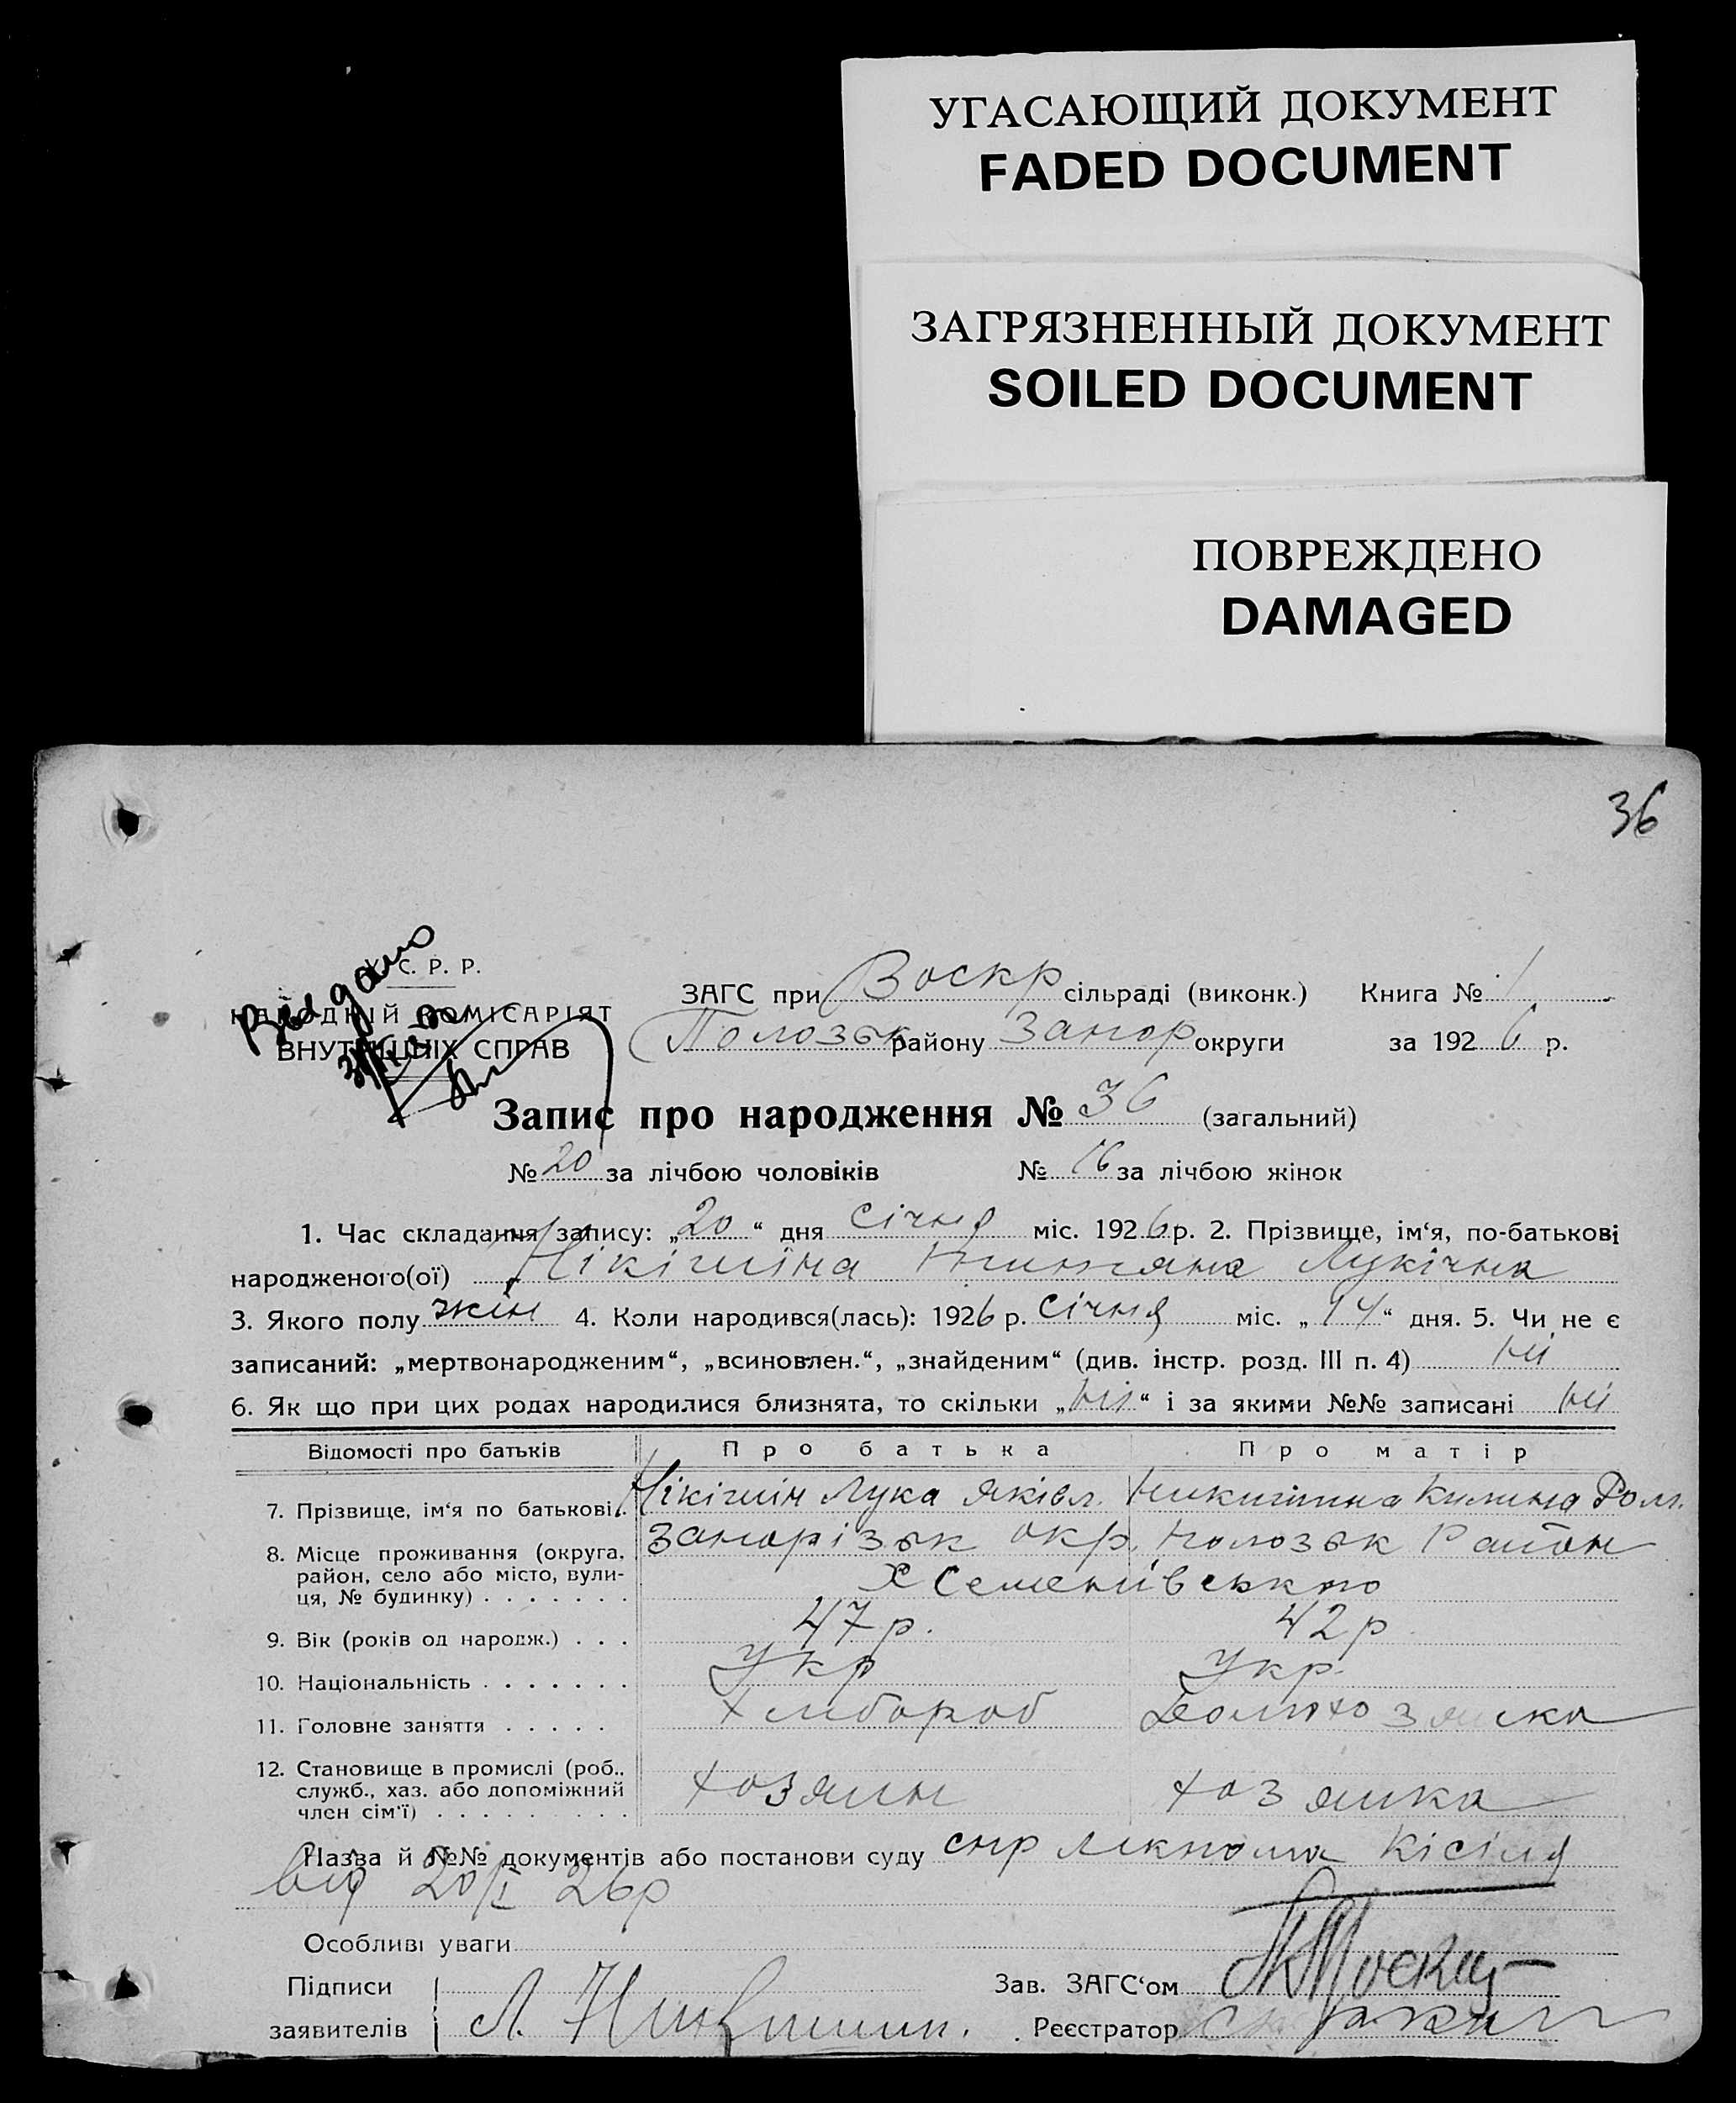 УГАСАЮЩИЙ ДОКУМЕНТ
FADED DOCUMENT
ЗАГРЯЗНЕННЫЙ ДОКУМЕНТ
SOILED DOCUMENT
ПОВРЕЖДЕНО
DAMAGED
36
У. С. Р. Р.
НАРОДНІЙ КОМІСАРІЯТ
ВНУТРІШНІХ СПРАВ
Видано
ЗАГС при Воскр сільраді (виконк.) Книга № 1
Полозьк району Запор округи за 1926 р.
Запис про народження № 36 (загальний)
№ 20 за лічбою чоловіків № 16 за лічбою жінок
1. Час складання запису: „20“ дня січня міс. 1926 р. 2. Прізвище, ім‘я, по-батькові
народженого(ої) Нікішіна Лукічна
3. Якого полу жін 4. Коли народився(лась): 1926 р. Січня міс. „14“ дня. 5. Чи не є
записаний: „мертвонародженим“, „всиновлен.“, „знайденим“ (див. інстр. розд. III п. 4) ні
6. Як що при цих родах народилися близнята, то скільки „ні“ і за якими №№ записані ні
Відомості про батьків Про батька Про матір
7. Прізвище, ім‘я по батькові. Нікішін Лука Яківл. Никишина Килина Ром.
8. Місце проживання (округа, район, село або місто, вулиця, № будинку) Запорізьк окр. Полозьк Район
Х Семенівського
9. Вік (років од народж.) 47 р. 42 р
10. Національність Укр Укр.
11. Головне заняття Хлибороб Домохозяика
12. Становище в промислі (роб., служб., хаз. або допоміжний член сім‘ї) хозяин хозяика
Назва й №№ документів або постанови суду спр Лікпома Кісіля
від 20/I 26р
Особливі уваги
Підписи заявителів Л. Никишин.
Зав. ЗАГС‘ом
Реєстратор